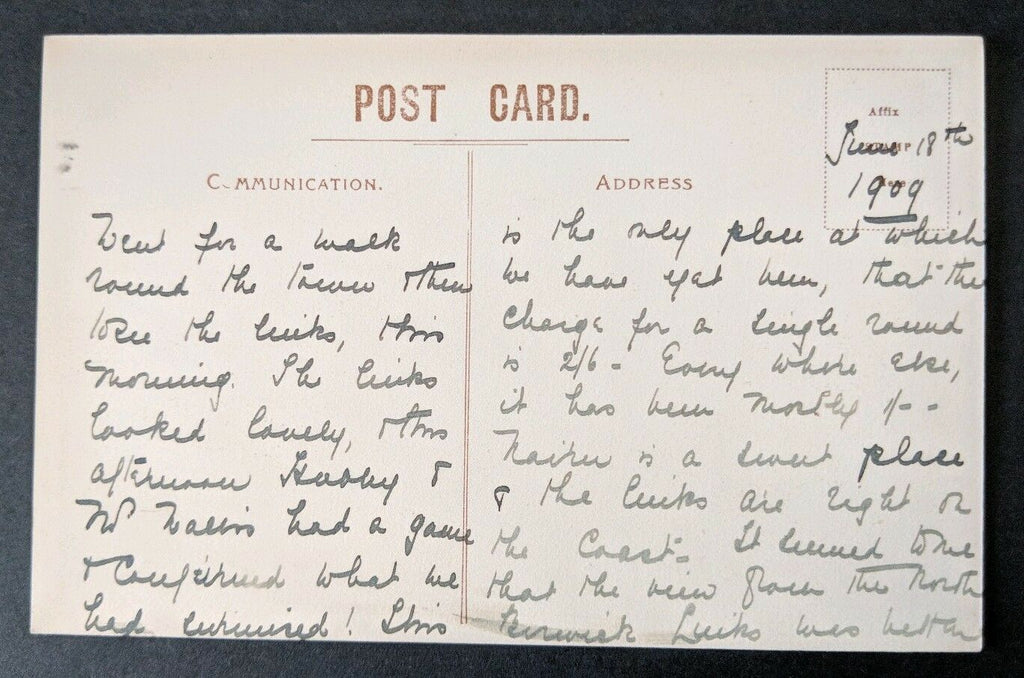 POST CARD.
Affix
STAMP
Here
June 18th
1909
COMMUNICATION.
ADDRESS
Went for a walk
round the town & then
to see the links, this
morning. The links
looked lovely, & this
afternoon Hubby &
Mr had a game
& Confirmed what we
had surmised! This
is the only place at which
we have yet been, that the
charge for a single round
is 2/6 - Every where else,
it has been mostly 1/- -
Nairn is a sweet place
& the links are right on
the Coast. It seemed to me
that the view from the North
Berwick Links was better